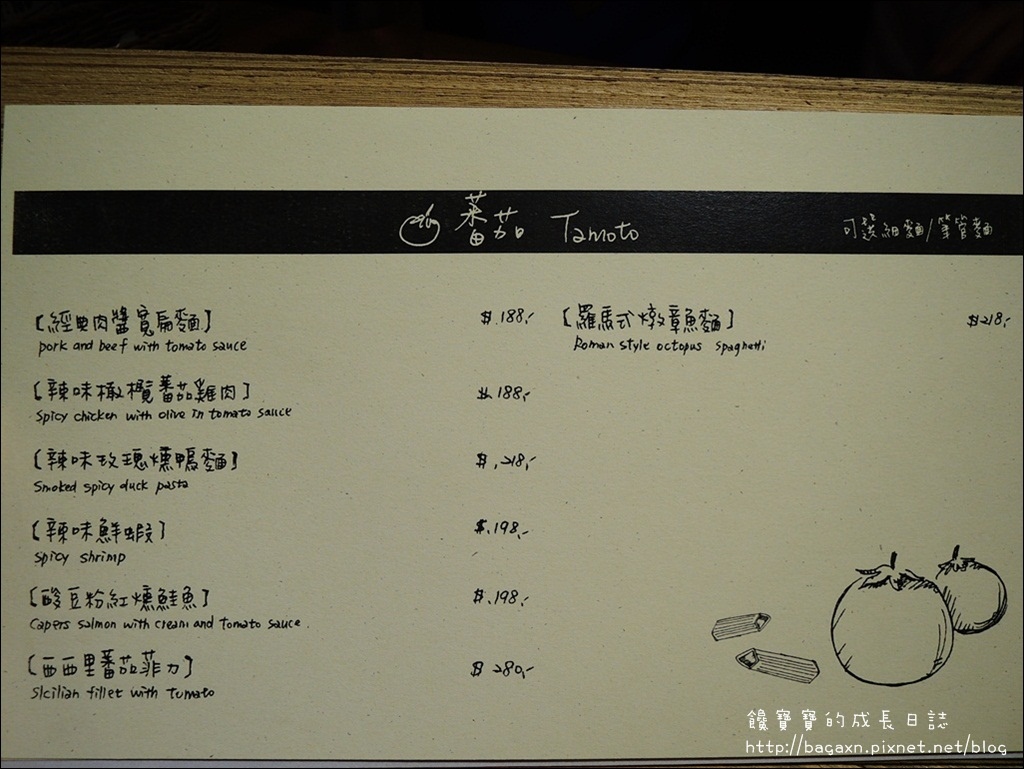 蕃茄 Tamoto
可選細麵/筆管麵
【經典肉醬寬扁麵】 $.188.-
pork and beef with tomato sauce
【辣味橄欖蕃茄雞肉】 $.188.-
Spicy chicken with olive in tomato sauce
【辣味玫瑰燻鴨麵】 $.218.-
Smoked spicy duck pasta
【辣味鮮蝦】 $.198.-
Spicy shrimp
【酸豆粉紅燻鮭魚】 $.198.-
Capers salmon with cream and tomato sauce.
【西西里蕃茄菲力】 $280.-
Sicilian fillet with tumato
【羅馬式燉章魚麵】 $218.-
Roman style octopus spaghetti
饞寶寶的成長日誌
http://bagaxn.pixnet.net/blog